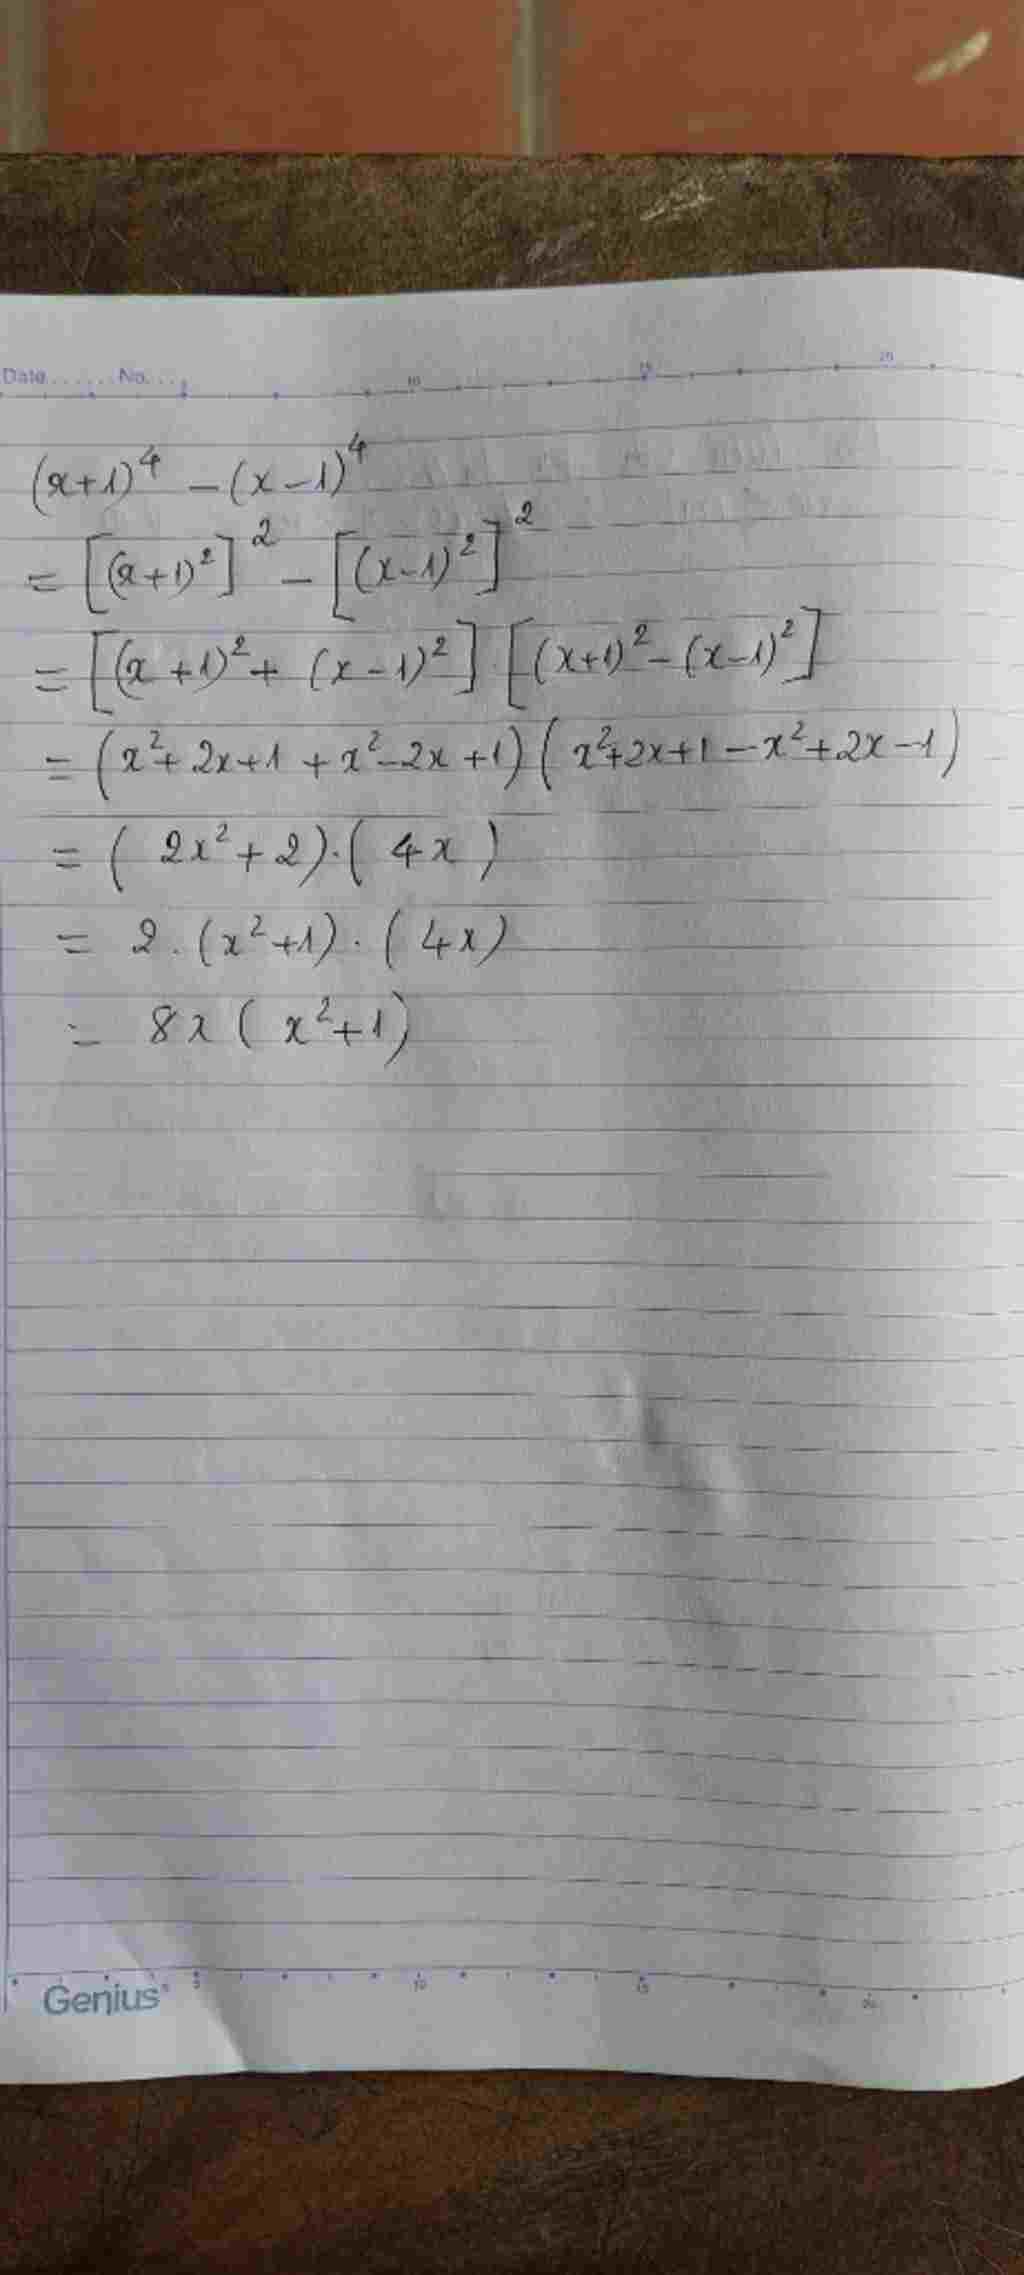 Date...... No....
10 15 20
(x+1)⁴ - (x-1)⁴
= [(x+1)²]² - [(x-1)²]²
= [(x+1)² + (x-1)²] [(x+1)² - (x-1)²]
= (x²+2x+1+x²-2x+1)(x²+2x+1-x²+2x-1)
= (2x²+2).(4x)
= 2.(x²+1).(4x)
= 8x(x²+1)
5 10 15 20
Genius